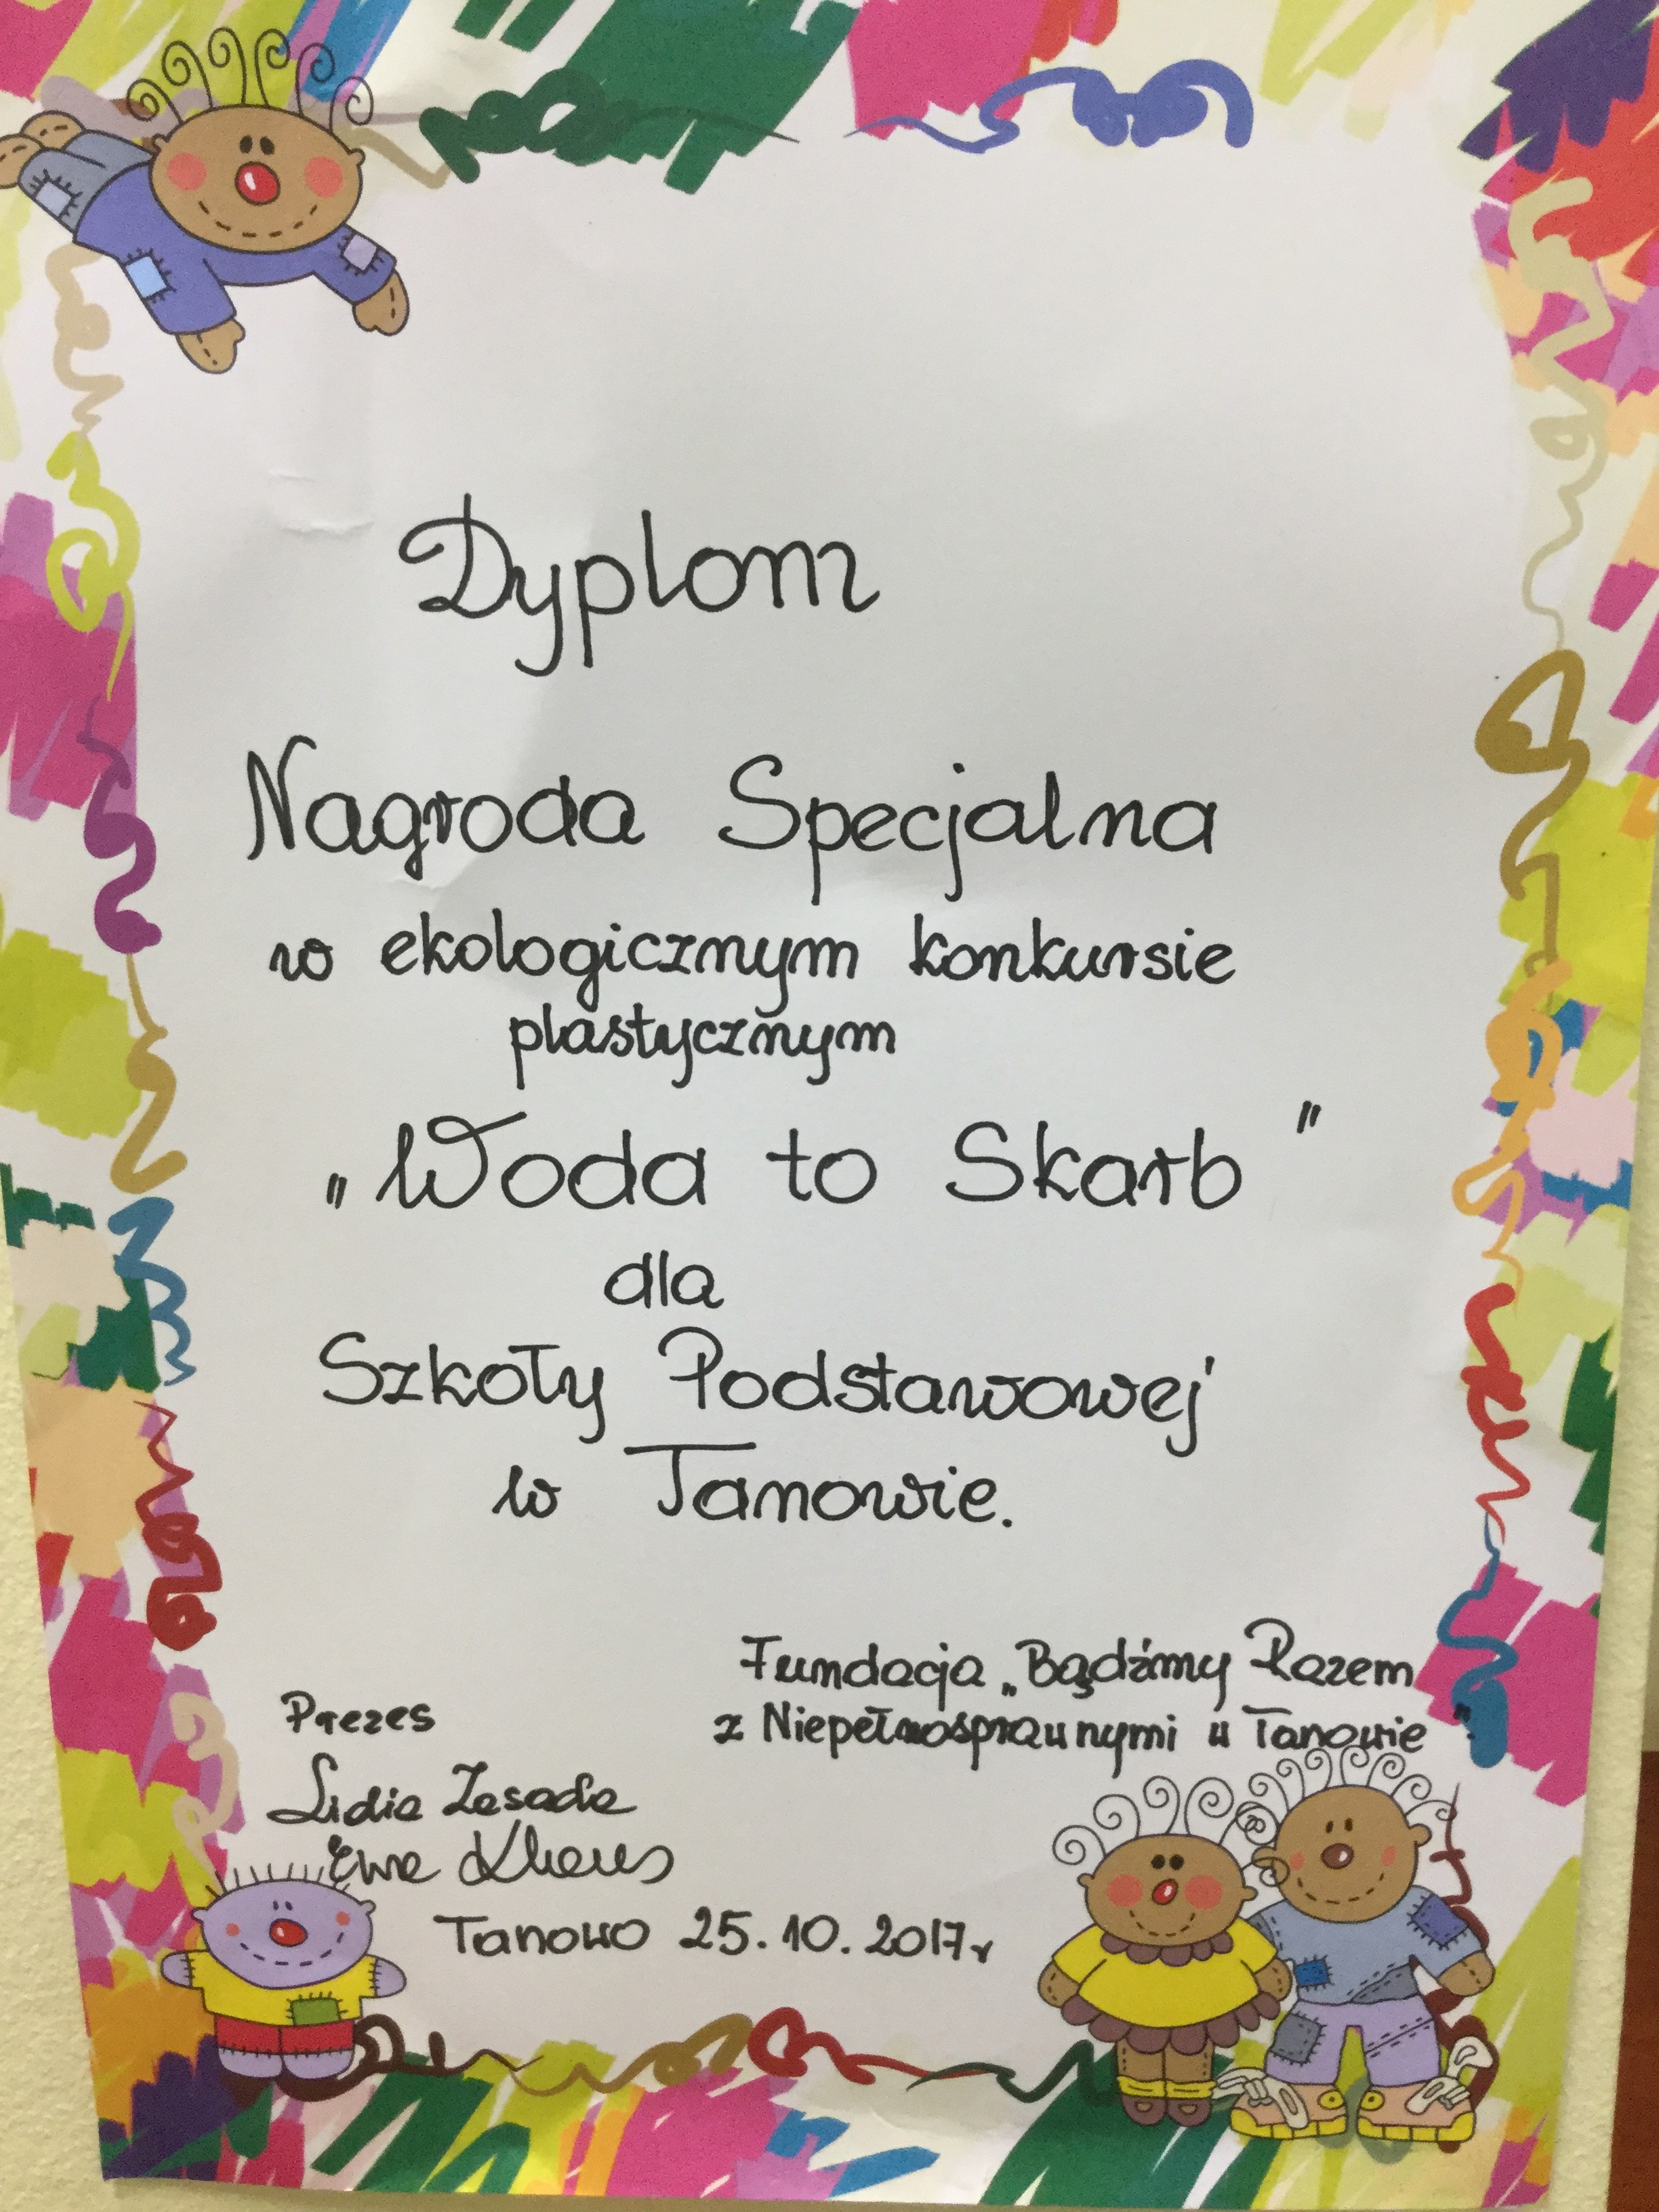 Dyplom
Nagroda Specjalna
w ekologicznym konkursie
plastycznym
„Woda to Skarb"
dla
Szkoły Podstawowej
w Tanowie.
Fundacja „Bądźmy Razem
z Niepełnosprawnymi w Tanowie"
Prezes
Lidia Zasada
Ewa
Tanowo 25.10.2017r